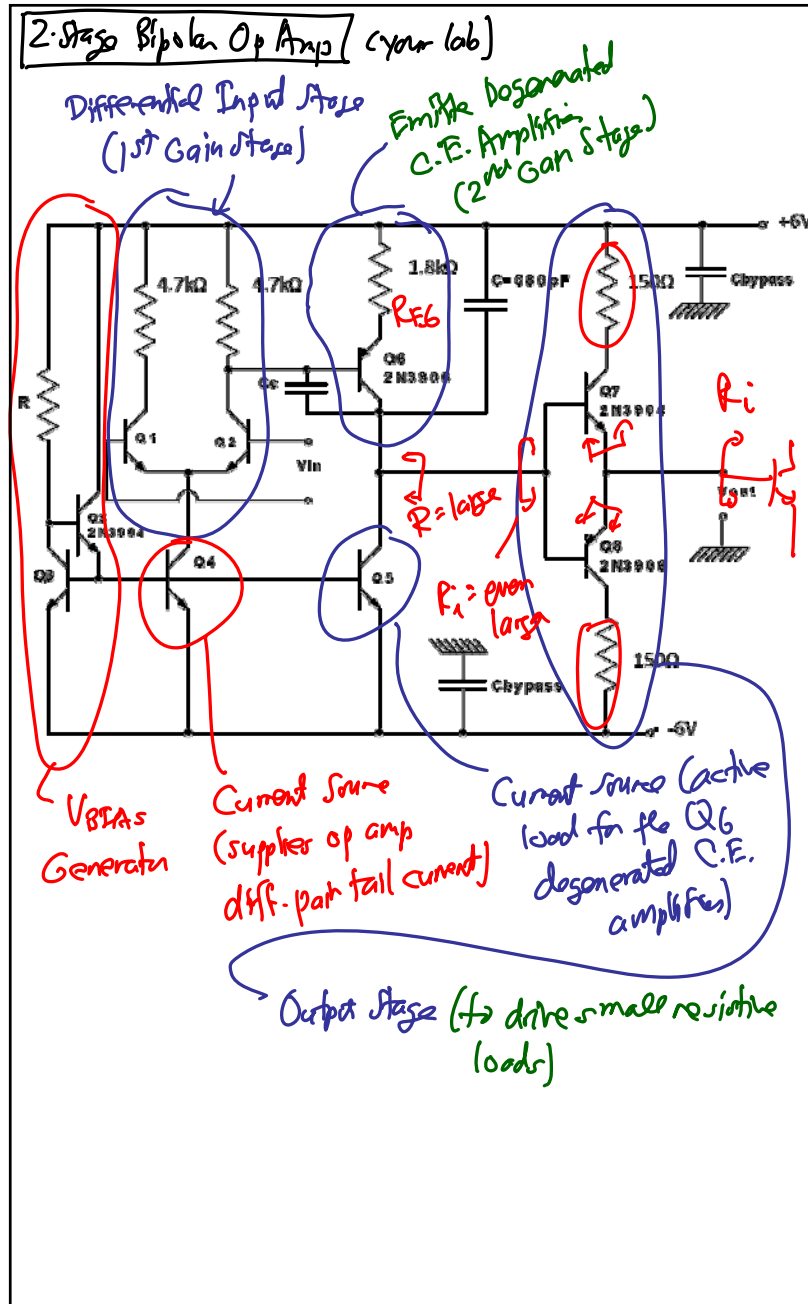 2-Stage Bipolar Op Amp (your lab)
Differential Input Stage
(1st Gain Stage)
Emitter Degenerated
C.E. Amplifier
(2nd Gain Stage)
+5V
4.7kΩ
4.7kΩ
1.8kΩ
C=680pF
150Ω
Cbypass
RE6
Q6
2N3906
Cc
Q7
2N3904
Ri
R
Q1
Q2
Vin
Vout
R=large
2N3904
Q4
Q5
Q8
2N3906
Ri=even
large
150Ω
Cbypass
-5V
VBIAS
Generator
Current source
(supplies op amp
diff. pair tail current)
Current source (active
load for the Q6
degenerated C.E.
amplifier)
Output stage (to drive small resistive
loads)